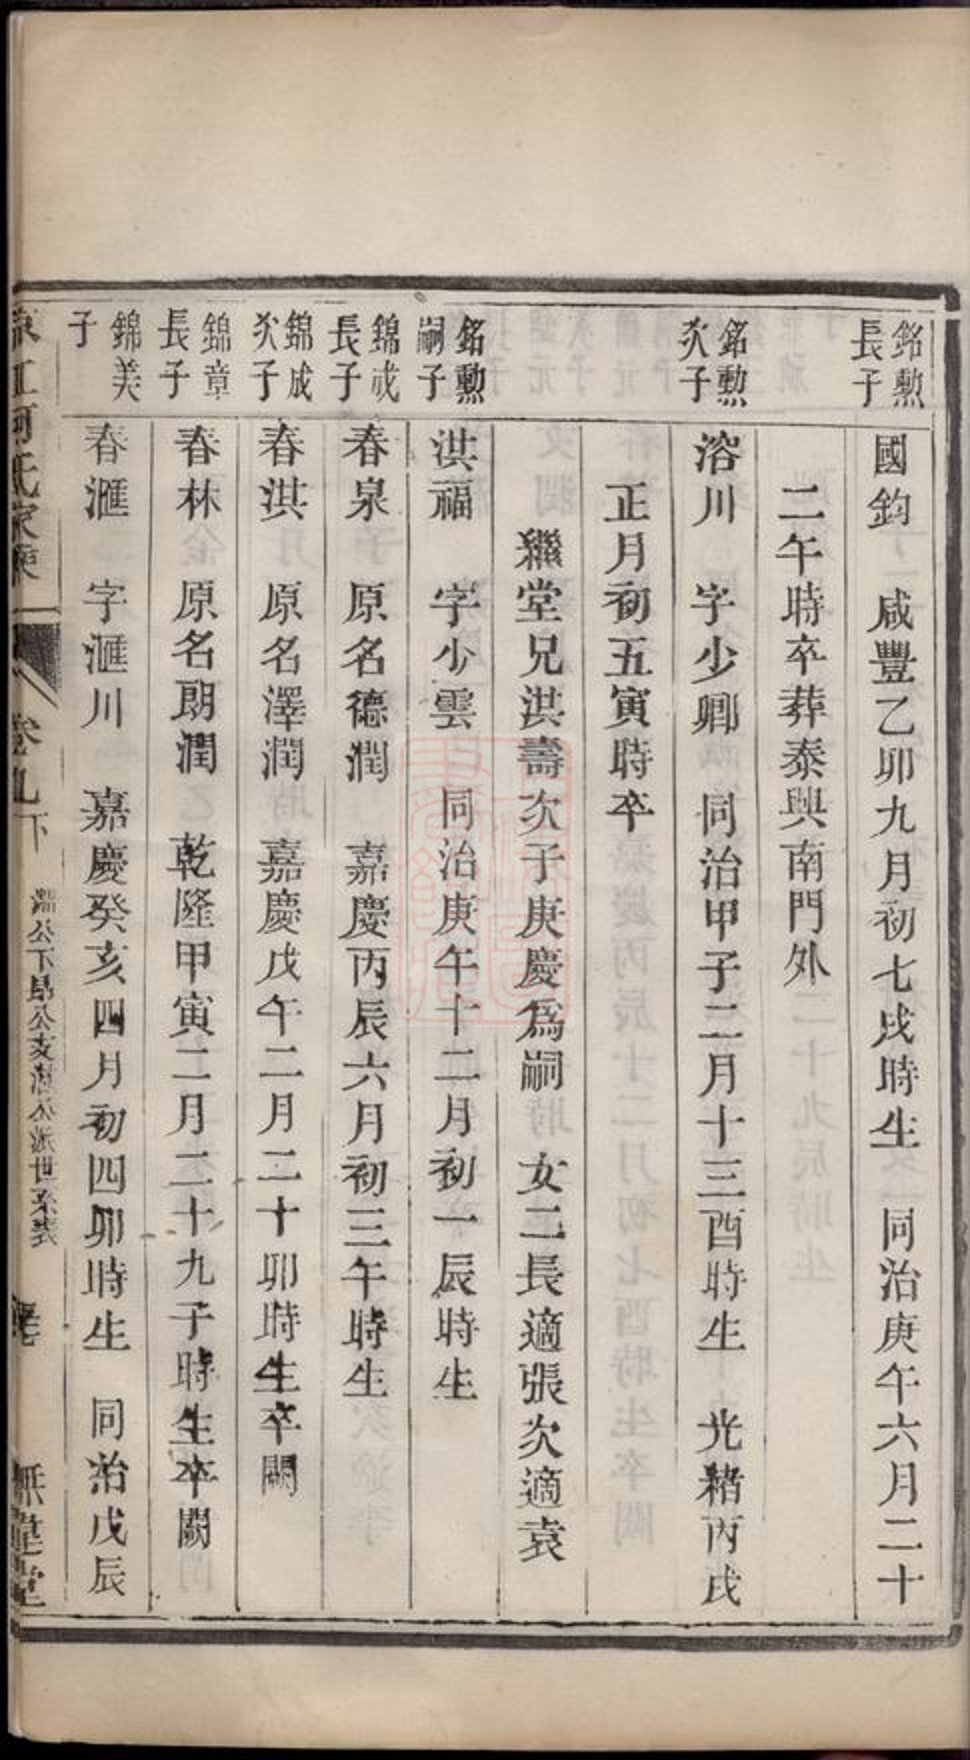 銘勲長子
國鈞　咸豐乙卯九月初七戌時生　同治庚午六月二十
二午時卒葬泰興南門外
銘勲次子
溶川　字少卿　同治甲子二月十三酉時生　光緒丙戌
正月初五寅時卒
繼堂兄洪壽次子庚慶爲嗣　女二長適張次適袁
銘勲嗣子
洪福　字少雲　同治庚午十二月初一辰時生
錦成長子
春泉　原名德潤　嘉慶丙辰六月初三午時生
錦成次子
春洪　原名澤潤　嘉慶戊午二月二十卯時生卒闕
錦章長子
春林　原名朗潤　乾隆甲寅二月二十九子時生卒闕
錦美子
春滙　字滙川　嘉慶癸亥四月初四卯時生　同治戊辰
氏家乘
卷九下
公下昂公支公派世系表
堂